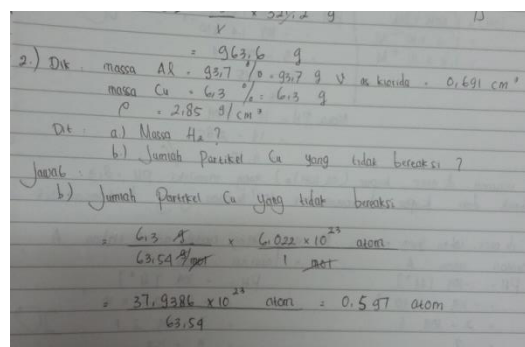 × 321,2 g
= 963,6 g
2.) Dik : massa Al = 93,7 % = 93,7 g V as klorida = 0,691 cm³
massa Cu = 6,3 % = 6,3 g
ρ = 2,85 g/cm³
Dit : a.) Massa H₂ ?
b.) Jumlah Partikel Cu yang tidak bereaksi ?
Jawab
b.) Jumlah Partikel Cu yang tidak bereaksi
= 6,3 g / 63,54 g/mol × 6,022 × 10²³ atom / 1 mol
= 37,9386 × 10²³ atom / 63,54 = 0,597 atom